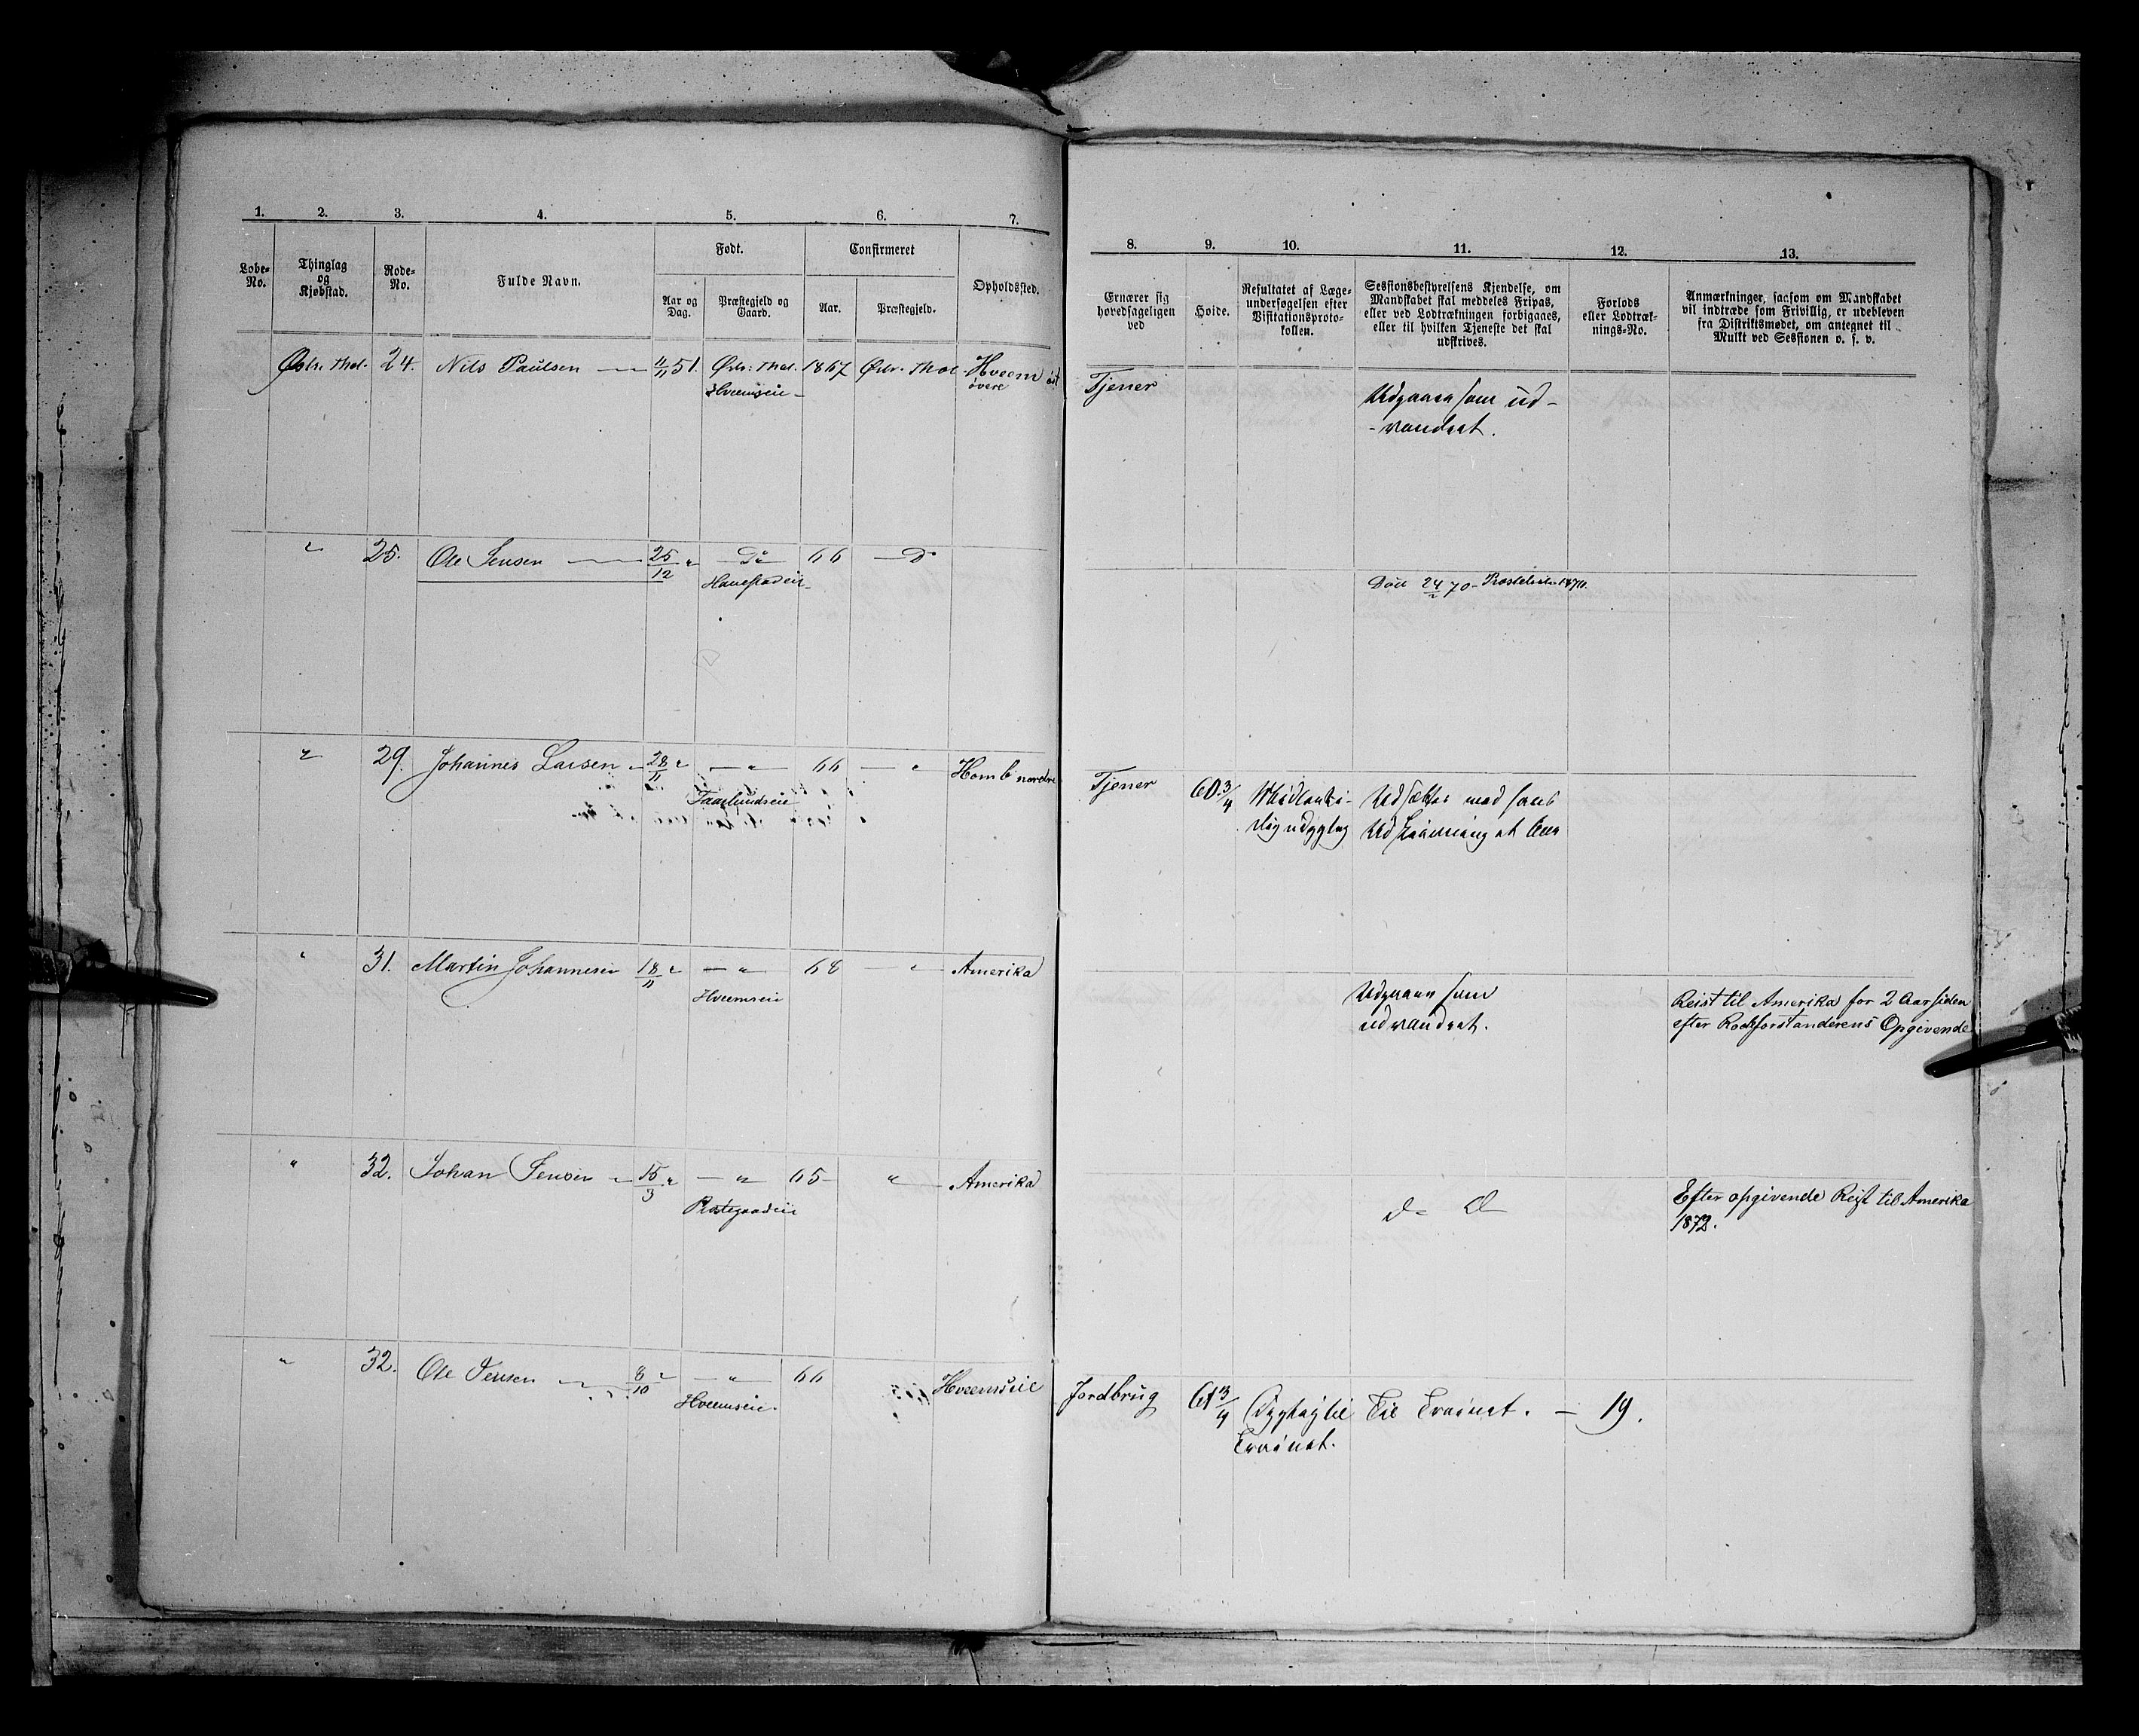 1. 2. 3. 4. 5. 6. 7.
Løbe-No. Thinglag og Kjøbstad. Rode-No. Fulde Navn. Født. Confirmeret Opholdssted.
Aar og Dag. Præstegjeld og Gaard. Aar. Præstegjeld.
Østr. Thot. 24. Nils Paulsen 4/11 51. Østr. Thot. 1867 Østr. Thot Hveem
Hveemseie øvre
" 25. Ole Jensen 25/12 " Do 66 Do
" 29. Johannes Larsen 28/11 " " 66 " Homb nordre
Taaslundseie
" 31. Martin Johannesen 18/11 " " 68 " Amerika
Hveemseie
" 32. Johan Jensen 15/3 " " 65 " Amerika
" 32. Ole Jensen 8/10 " " 66 Hveemseie
Hveemseie.
8. 9. 10. 11. 12. 13.
Ernærer sig hovedsageligen ved
Høide.
Resultatet af Læge-
undersøgelsen efter
Visitationsproto-
kollen.
Sessionsbestyrelsens Kjendelse, om
Mandskabet skal meddeles Fripas,
eller ved Lodtrækningen forbigaaes,
eller til hvilken Tjeneste det skal
udskrives.
Forlods
eller Lodtræk-
nings-No.
Anmærkninger, saasom om Mandskabet
vil indtræde som Frivillig, er udebleven
fra Distriktsmødet, om antegnet til
Mulkt ved Sessionen o. s. v.
Tjener Udgaaer som ud-
-vandret.
Død 24/2 70
Tjener 60 3/4 Midlerti- Udsættes med
dig udygtig
Udgaaer som Reist til Amerika for 2 Aar siden
udvandret. efter Rodeforstanderens Opgivende
do Do Efter opgivende Reist til Amerika
1872.
Jordbrug 61 3/4 Dygtig til Til Trainet. — 19.
Trainet.